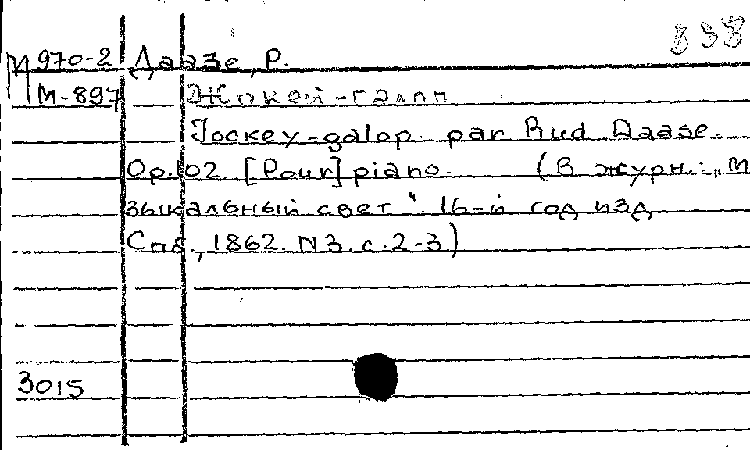 838
М 970-2 Даазе, Р.
М-897 Жокей-галоп
Jockey-galop par Rud Daase.
Op.102 [Pour] piano. (В журн.: „М
зыкальный свет" 16-й год изд
Спб., 1862. N3. с.2-3)
3015